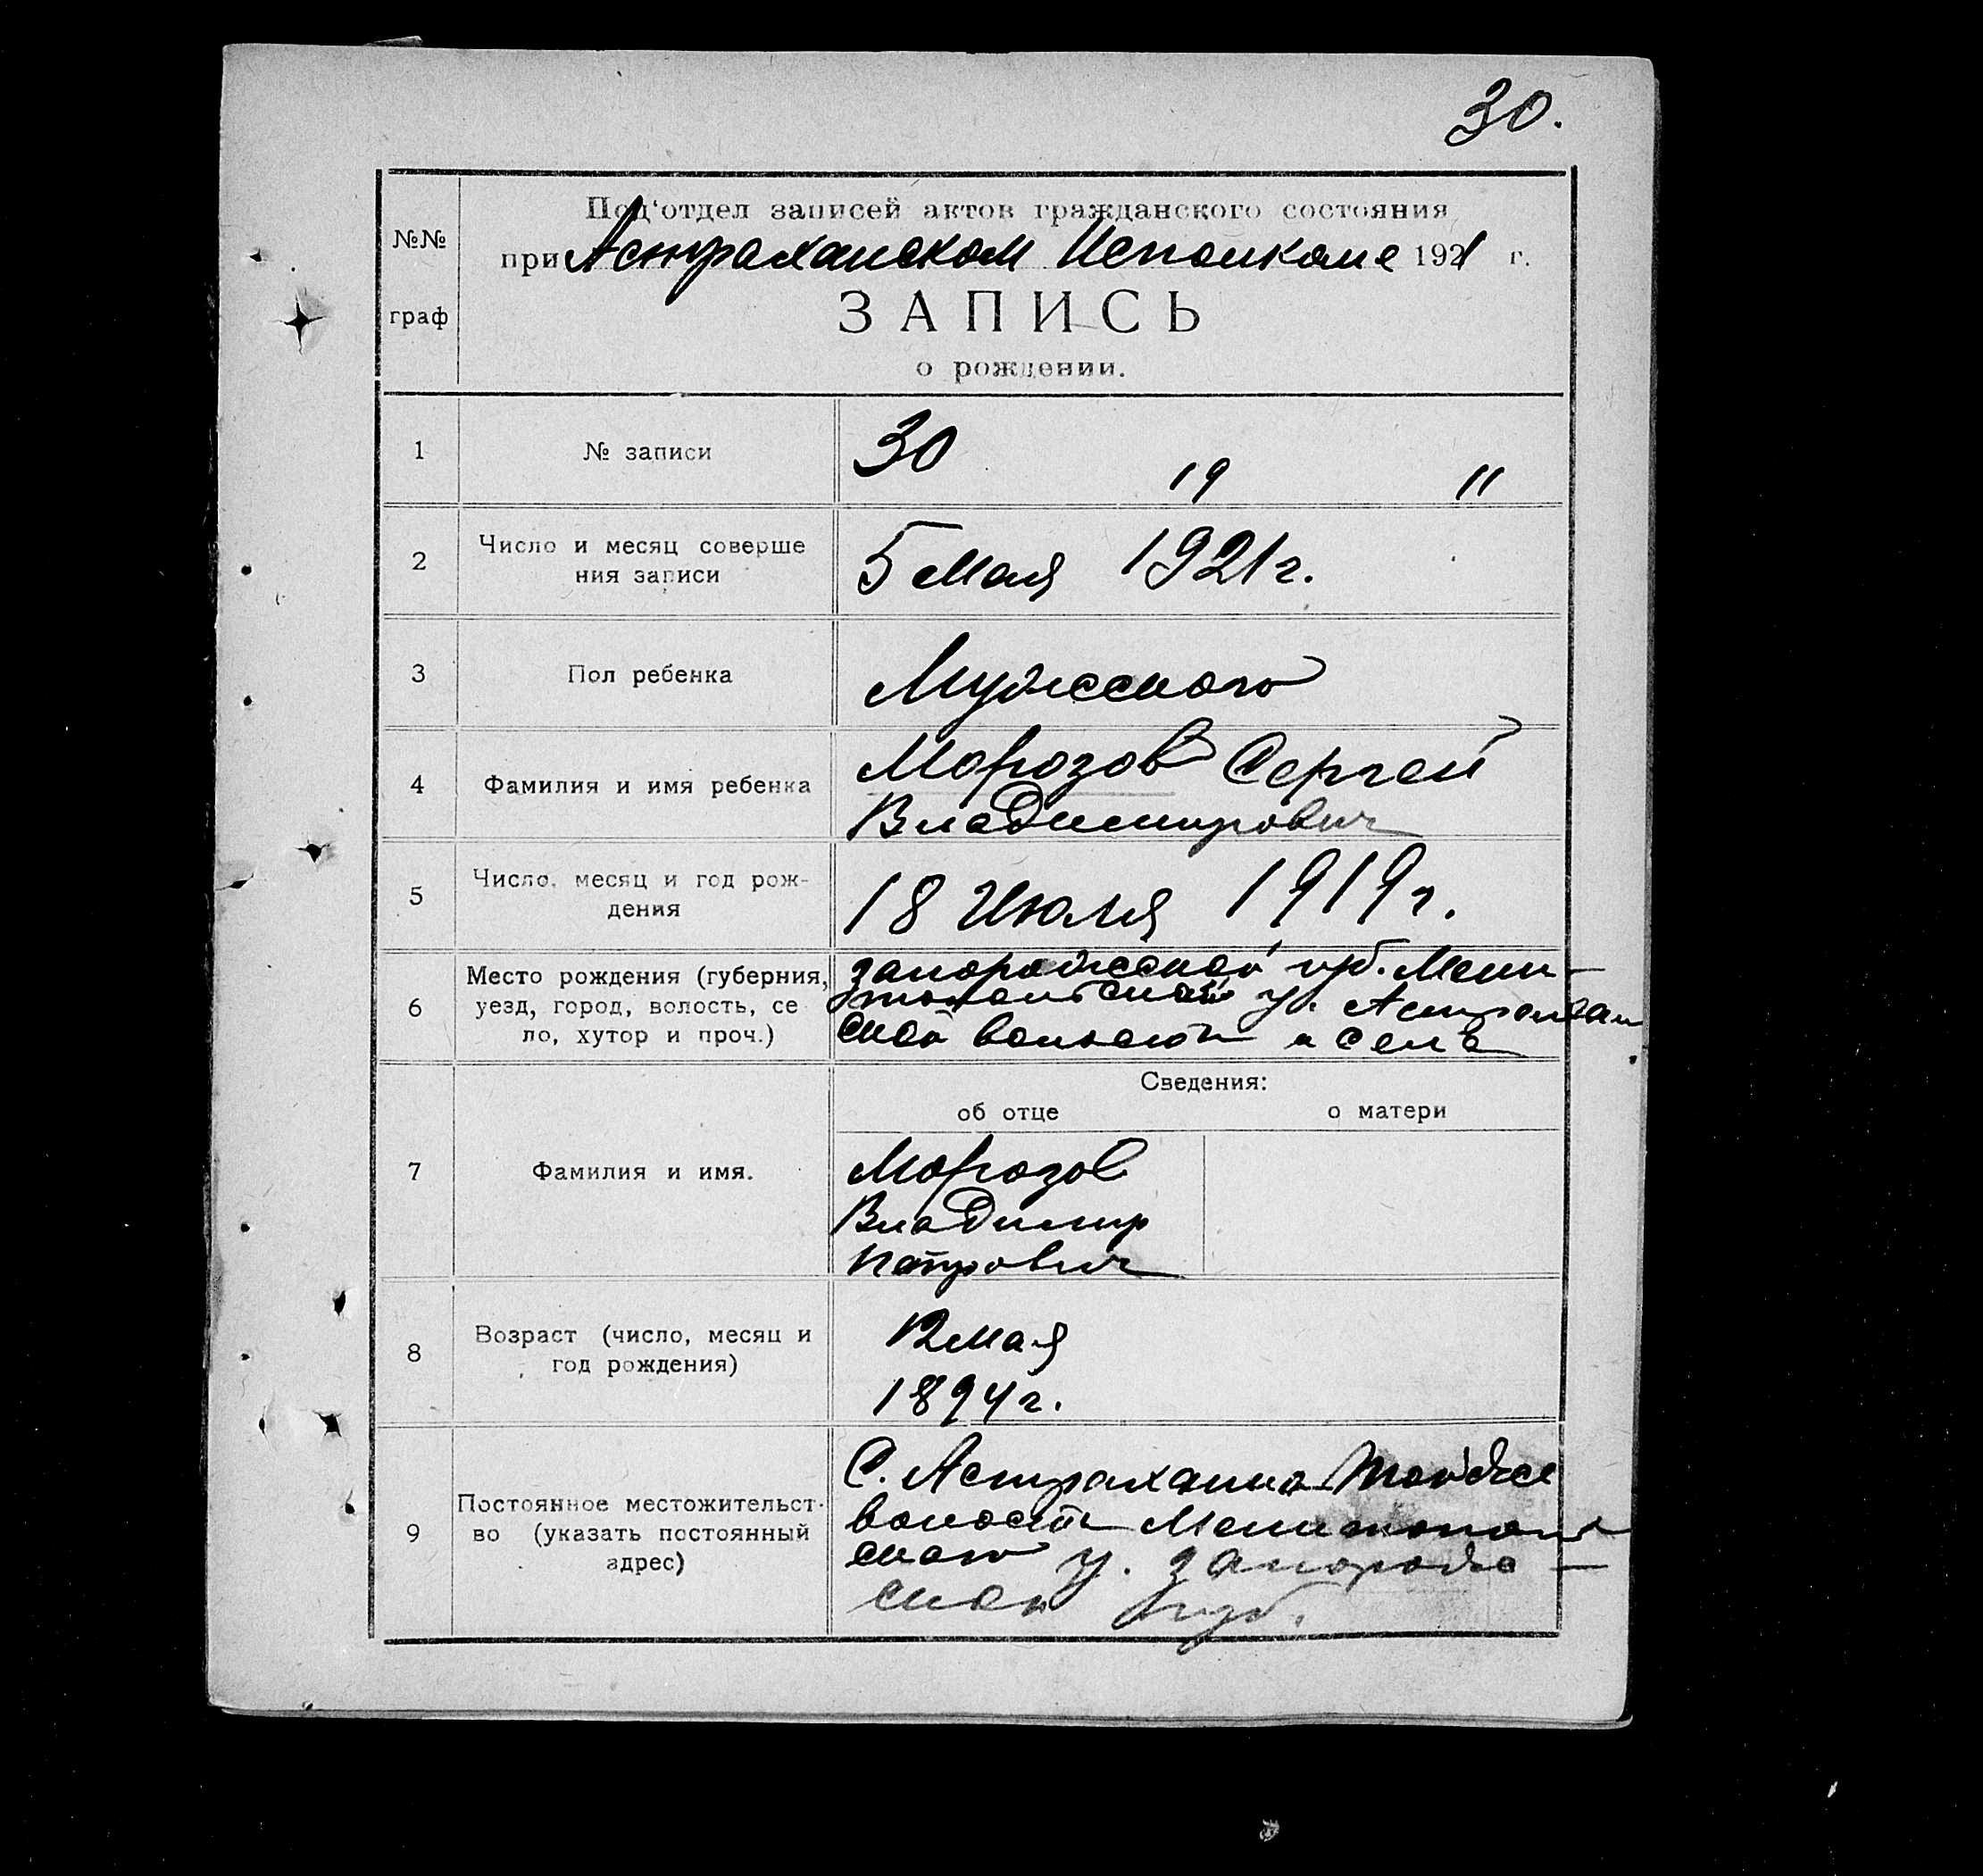 30.
Под'отдел записей актов гражданского состояния
№№
при Астраханском Исполкоме 1921 г.
граф
ЗАПИСЬ
о рождении.
1 № записи 30 19 "
2 Число и месяц соверше
ния записи
5 Мая 1921 г.
3 Пол ребенка Мужского
4 Фамилия и имя ребенка Морозов Сергей
Владимирович
5 Число, месяц и год рож-
дения
18 Июля 1919 г.
6 Место рождения (губерния,
уезд, город, волость, се
ло, хутор и проч.)
Запорожской губ. Мели-
топольского у. Астрахан
ской волости и села
Сведения:
об отце о матери
7 Фамилия и имя. Морозов
Владимир
Петрович
8 Возраст (число, месяц и
год рождения)
12 мая
1894 г.
9 Постоянное местожительст-
во (указать постоянный
адрес)
С. Астраханка той же
волости Мелитополь
ского у. Запорож-
ской губ.